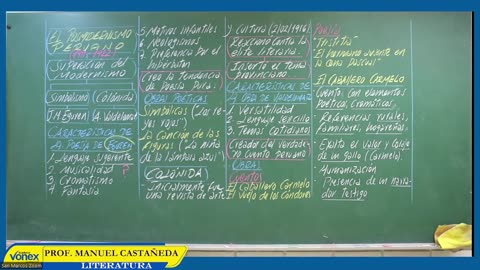 EL POSMODERNISMO
PERUANO
Superación del
Modernismo
Simbolismo (Colónida)
J.M. Eguren A. Valdelomar
CARACTERÍSTICAS DE
LA POESÍA DE EGUREN
1. Lenguaje sugerente
2. Musicalidad
3. Cromatismo
4. Fantasía
5 Motivos infantiles
6 Neologismos
7 Preferencia por el
hipérbaton
Crea la tendencia
de Poesía Pura.
OBRAS POÉTICAS
Simbólicas (Los
reyes rojos)
La Canción de las
Figuras ("La niña
de la lámpara azul")
COLÓNIDA
- Inicialmente fue
una revista de arte
y Cultura (1916)
Reacciona contra la
élite literaria.
Insertó el tema
Provinciano
CARACTERÍSTICAS DE
LA OBRA DE VALDELOMAR
1 Versatilidad
2. Lenguaje sencillo
3. Temas cotidianos
Creador del verdade-
ro cuento peruano
OBRAS
Cuentos
El Caballero Carmelo
El Vuelo de los Cóndores
Poesía
"Tristitia"
"El hermano ausente en
la cena Pascual"
El CABALLERO CARMELO
Cuento. Con elementos
Poéticos, Cromáticos,
Referencias rurales,
Familiares, hogareñas,
- Exalta el valor y coraje
de un gallo (Carmelo)
- Humanización
Presencia de un narra-
dor testigo
Vonex
San Marcos Zoom
PROF. MANUEL CASTAÑEDA
LITERATURA